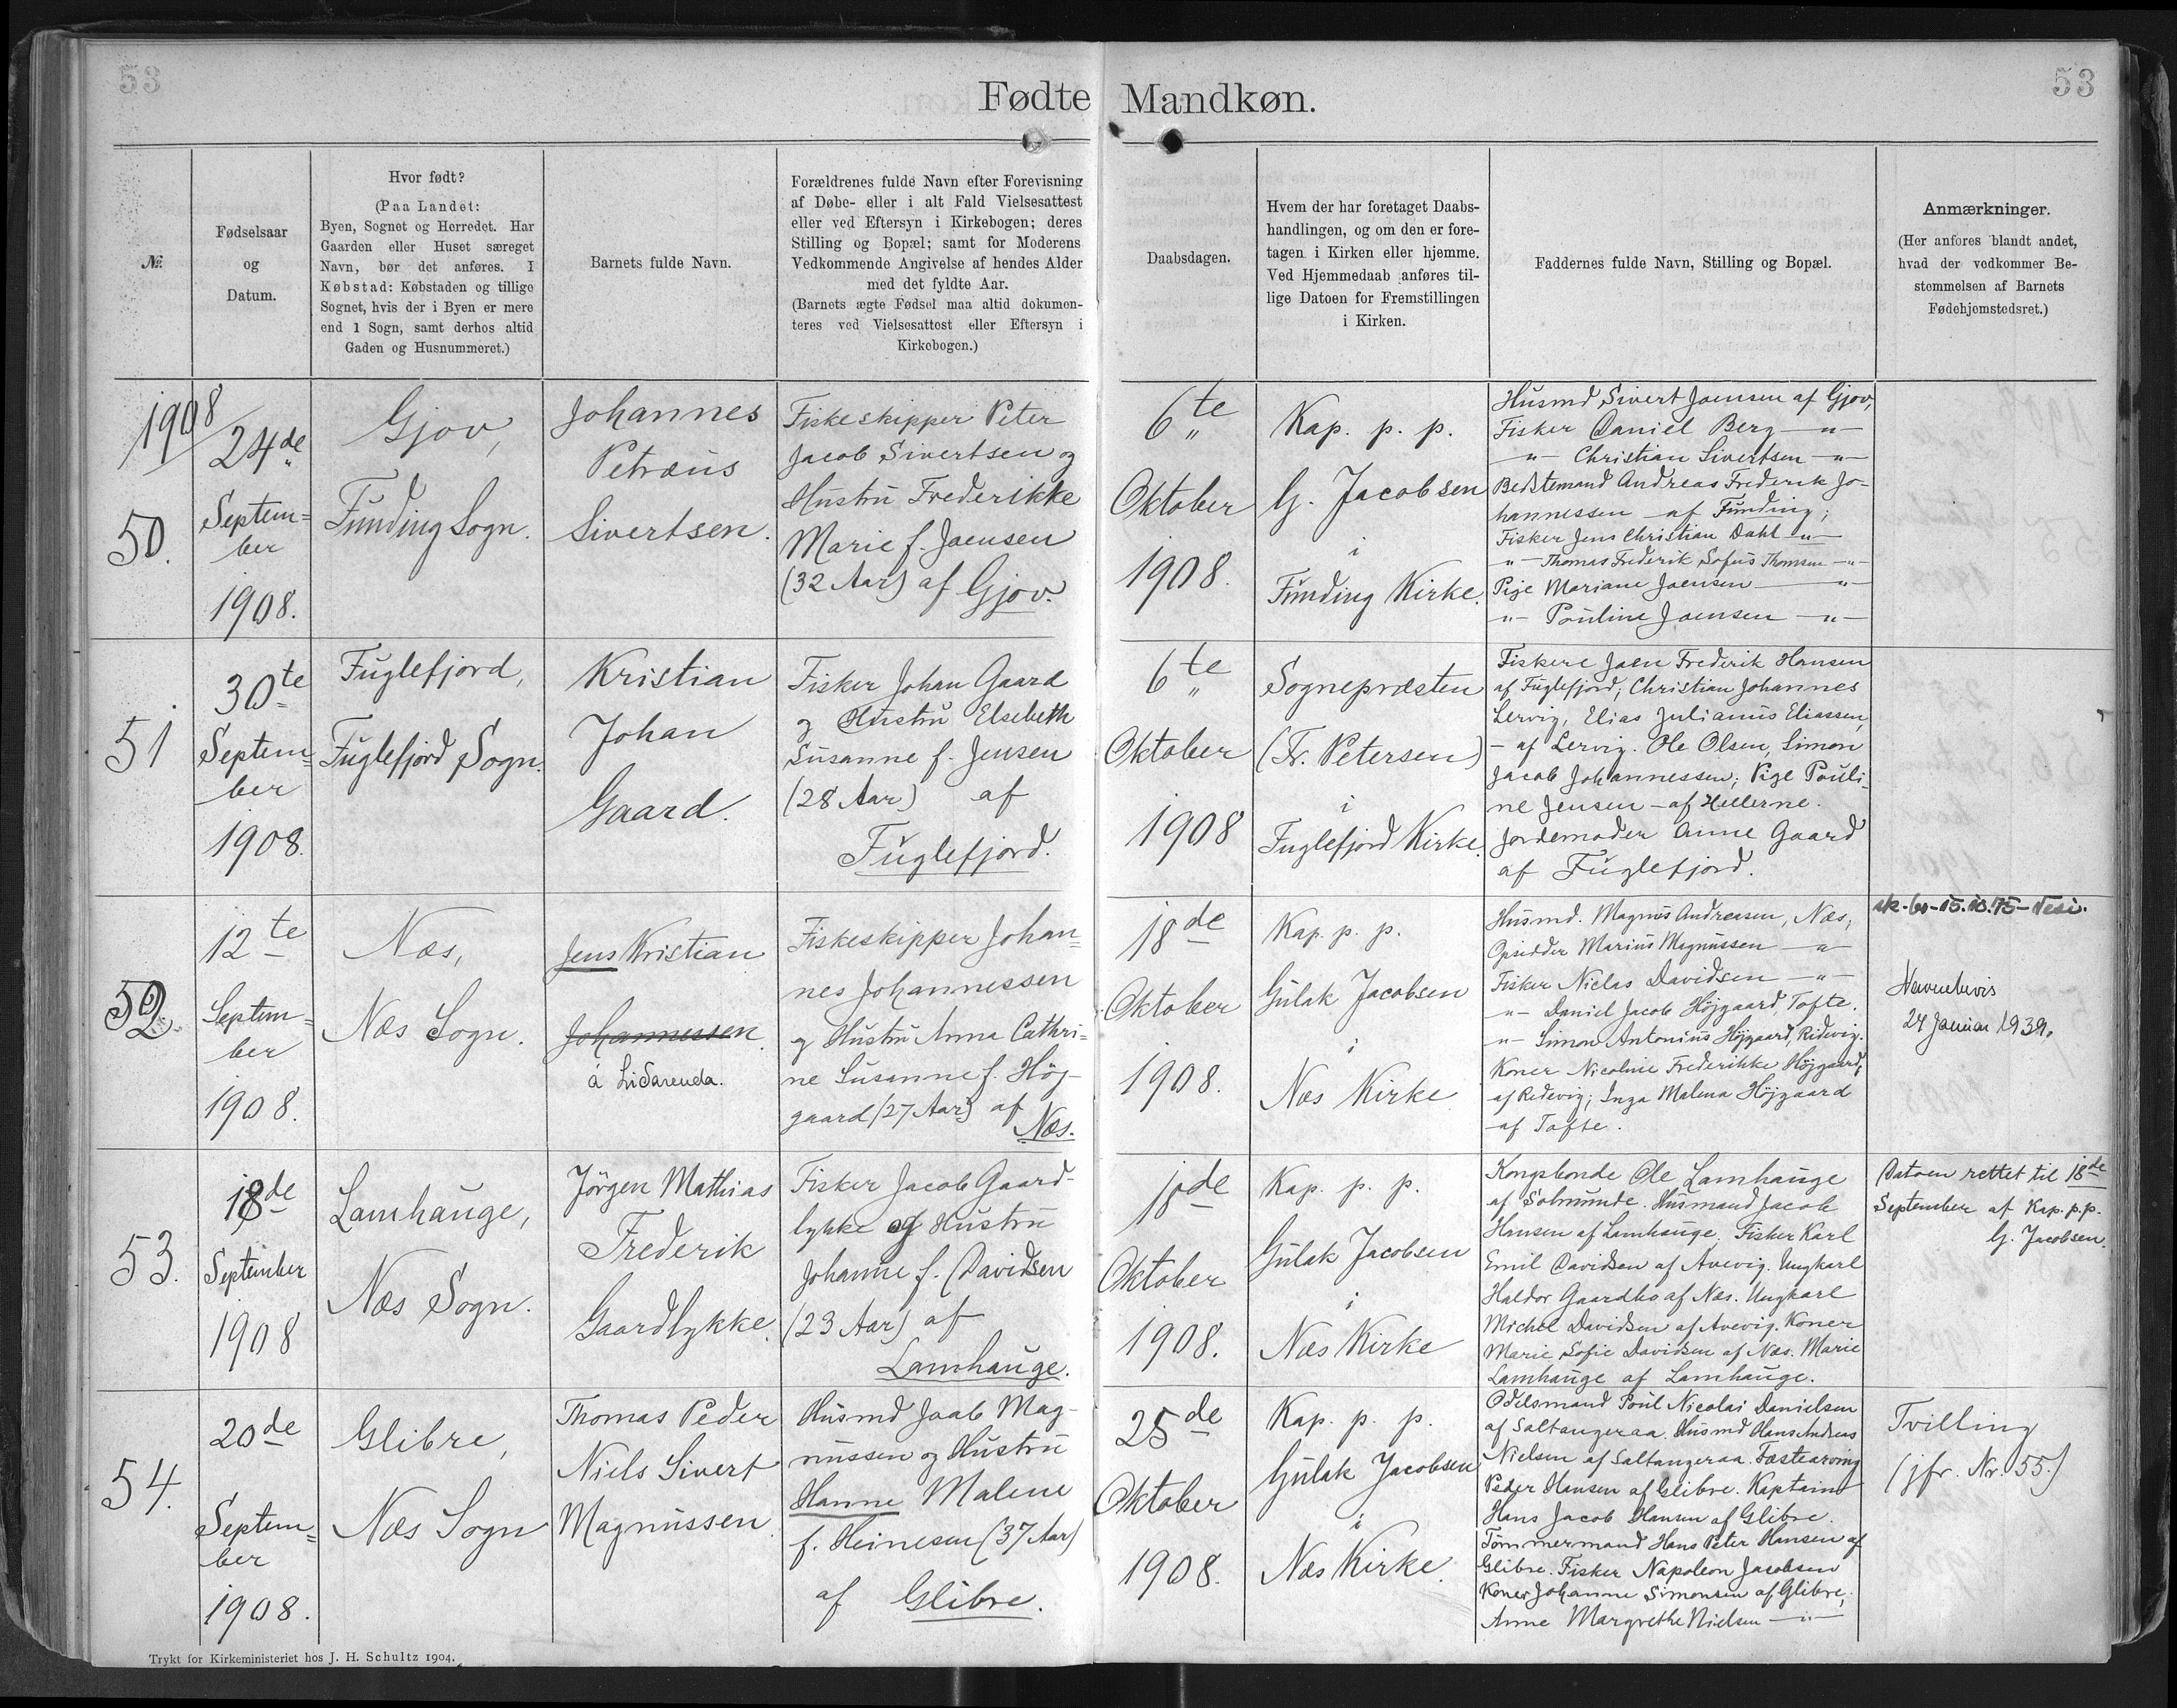 53
Fødte Mandkøn.
53
№
Fødselsaar
og
Datum.
Hvor født?
(Paa Landet:
Byen, Sognet og Herredet. Har
Gaarden eller Huset særeget
Navn, bør det anføres. I
Købstad: Købstaden og tillige
Sognet, hvis der i Byen er mere
end 1 Sogn, samt derhos altid
Gaden og Husnummeret.)
Barnets fulde Navn.
Forældrenes fulde Navn efter Forevisning
af Døbe- eller i alt Fald Vielsesattest
eller ved Eftersyn i Kirkebogen; deres
Stilling og Bopæl; samt for Moderens
Vedkommende Angivelse af hendes Alder
med det fyldte Aar.
(Barnets ægte Fødsel maa altid dokumen-
teres ved Vielsesattest eller Eftersyn i
Kirkebogen.)
Daabsdagen.
Hvem der har foretaget Daabs-
handlingen, og om den er fore-
tagen i Kirken eller hjemme.
Ved Hjemmedaab anføres til-
lige Datoen for Fremstillingen
i Kirken.
Faddernes fulde Navn, Stilling og Bopæl.
Anmærkninger.
(Her anføres blandt andet,
hvad der vedkommer Be-
stemmelsen af Barnets
Fødehjemstedsret.)
1908
50.
24de
Septem=
ber
1908.
Gjov,
Funding Sogn.
Johannes
Petræus
Sivertsen.
Fiskeskipper Peter
Jacob Sivertsen og
Hustru Frederikke
Marie f. Joensen
(32 Aar) af Gjov.
6te
Oktober
1908.
Kap. p. p.
G. Jacobsen
i
Funding Kirke.
Husmd Sivert Joensen af Gjov,
Fisker Daniel Berg —"—
—"— Christian Sivertsen —"—
Bedstemand Andreas Frederik Jo-
hannessen af Funding;
Fisker Jens Christian Dahl —"—
—"— Thomas Frederik Sofus Thomsen —"—
Pige Mariane Joensen —"—
—"— Pouline Joensen —"—
51
30te
Septem=
ber
1908.
Fuglefjord,
Fuglefjord Sogn.
Kristian
Johan
Gaard.
Fisker Johan Gaard
og Hustru Elsebeth
Susanne f. Jensen
(28 Aar) af
Fuglefjord.
6te
Oktober
1908
Sognepræsten
(Fr. Petersen)
i
Fuglefjord Kirke.
Fiskere Joen Frederik Hansen
af Fuglefjord; Christian Johannes
Lervig, Elias Julianus Eliassen,
— af Lervig. Ole Olsen, Simon
Jacob Johannessen; Pige Pouli-
ne Jensen — af Hellerne.
Jordemoder Anne Gaard
af Fuglefjord.
52.
12te
Septem=
ber
1908.
Næs,
Næs Sogn.
Jens Kristian
Johannessen
á Lidarenda.
Fiskeskipper Johan=
nes Johannessen
og Hustru Anna Cathri=
ne Susanne f. Høj-
gaard (27 Aar) af
Næs.
18de
Oktober
1908.
Kap. p. p.
Gulak Jacobsen
i
Næs Kirke
Husmd. Magnus Andreasen, Næs,
Opsidder Marius Magnussen —"—
Fisker Niclas Davidsen —"—
—"— Daniel Jacob Højgaard, Tofte.
—"— Simon Antonius Højgaard, Ridevig.
Koner Nicoline Frederikke Højgaard,
af Ridevig; Inga Malena Højgaard
af Tofte.
15.10.75
Navnebevis
24 Januar 1939.
53.
18de
September
1908
Lamhauge,
Næs Sogn.
Jörgen Mathias
Frederik
Gaardlykke.
Fisker Jacob Gaard-
lykke og Hustru
Johanne f. Davidsen
(23 Aar) af
Lamhauge.
18de
Oktober
1908.
Kap. p. p.
Gulak Jacobsen
i
Næs Kirke
Kongsbonde Ole Lamhauge
af Solmunde. Husmand Jacob
Hansen af Lamhauge. Fisker Karl
Emil Davidsen af Avevig. Ungkarl
Haldor Gaardbo af Næs. Ungkarl
Michel Davidsen af Avevig. Koner
Marie Sofie Davidsen af Næs. Marie
Lamhauge af Lamhauge.
Datoen rettet til 18de
September af Kap. p.p.
G. Jacobsen.
54.
20de
Septem=
ber
1908.
Glibre,
Næs Sogn
Thomas Peder
Niels Sivert
Magnussen.
Husmd Joab Mag-
nussen og Hustru
Hanne Malene
f. Heinesen (37 Aar)
af Glibre.
25de
Oktober
1908.
Kap. p. p.
Gulak Jacobsen
i
Næs Kirke.
Odelsmand Poul Nicolai Danielsen
af Saltangeraa. Husmd Hans Andreas
Nielsen af Saltangeraa. Fæstearving
Peder Hansen af Glibre. Kaptain
Hans Jacob Hansen af Glibre.
Tømmermand Hans Peter Hansen af
Glibre. Fisker Napoleon Jacobsen
Koner Johanne Simonsen af Glibre,
Anne Margrethe Nielsen —"—
Tvilling
(jfr. Nr. 55.)
Trykt for Kirkeministeriet hos J. H. Schultz 1904.